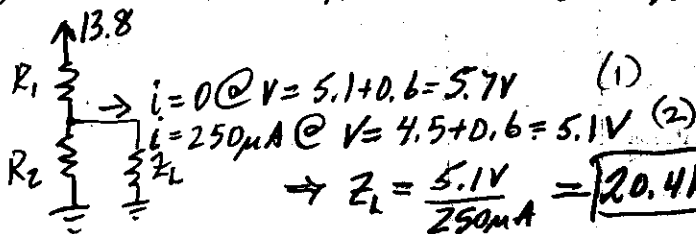 13.8
R₁ → i = 0 @ V = 5.1 + 0.6 = 5.7V (1)
i = 250μA @ V = 4.5 + 0.6 = 5.1V (2)
R₂ Z_L
⇒ Z_L = 5.1V / 250μA = 20.4